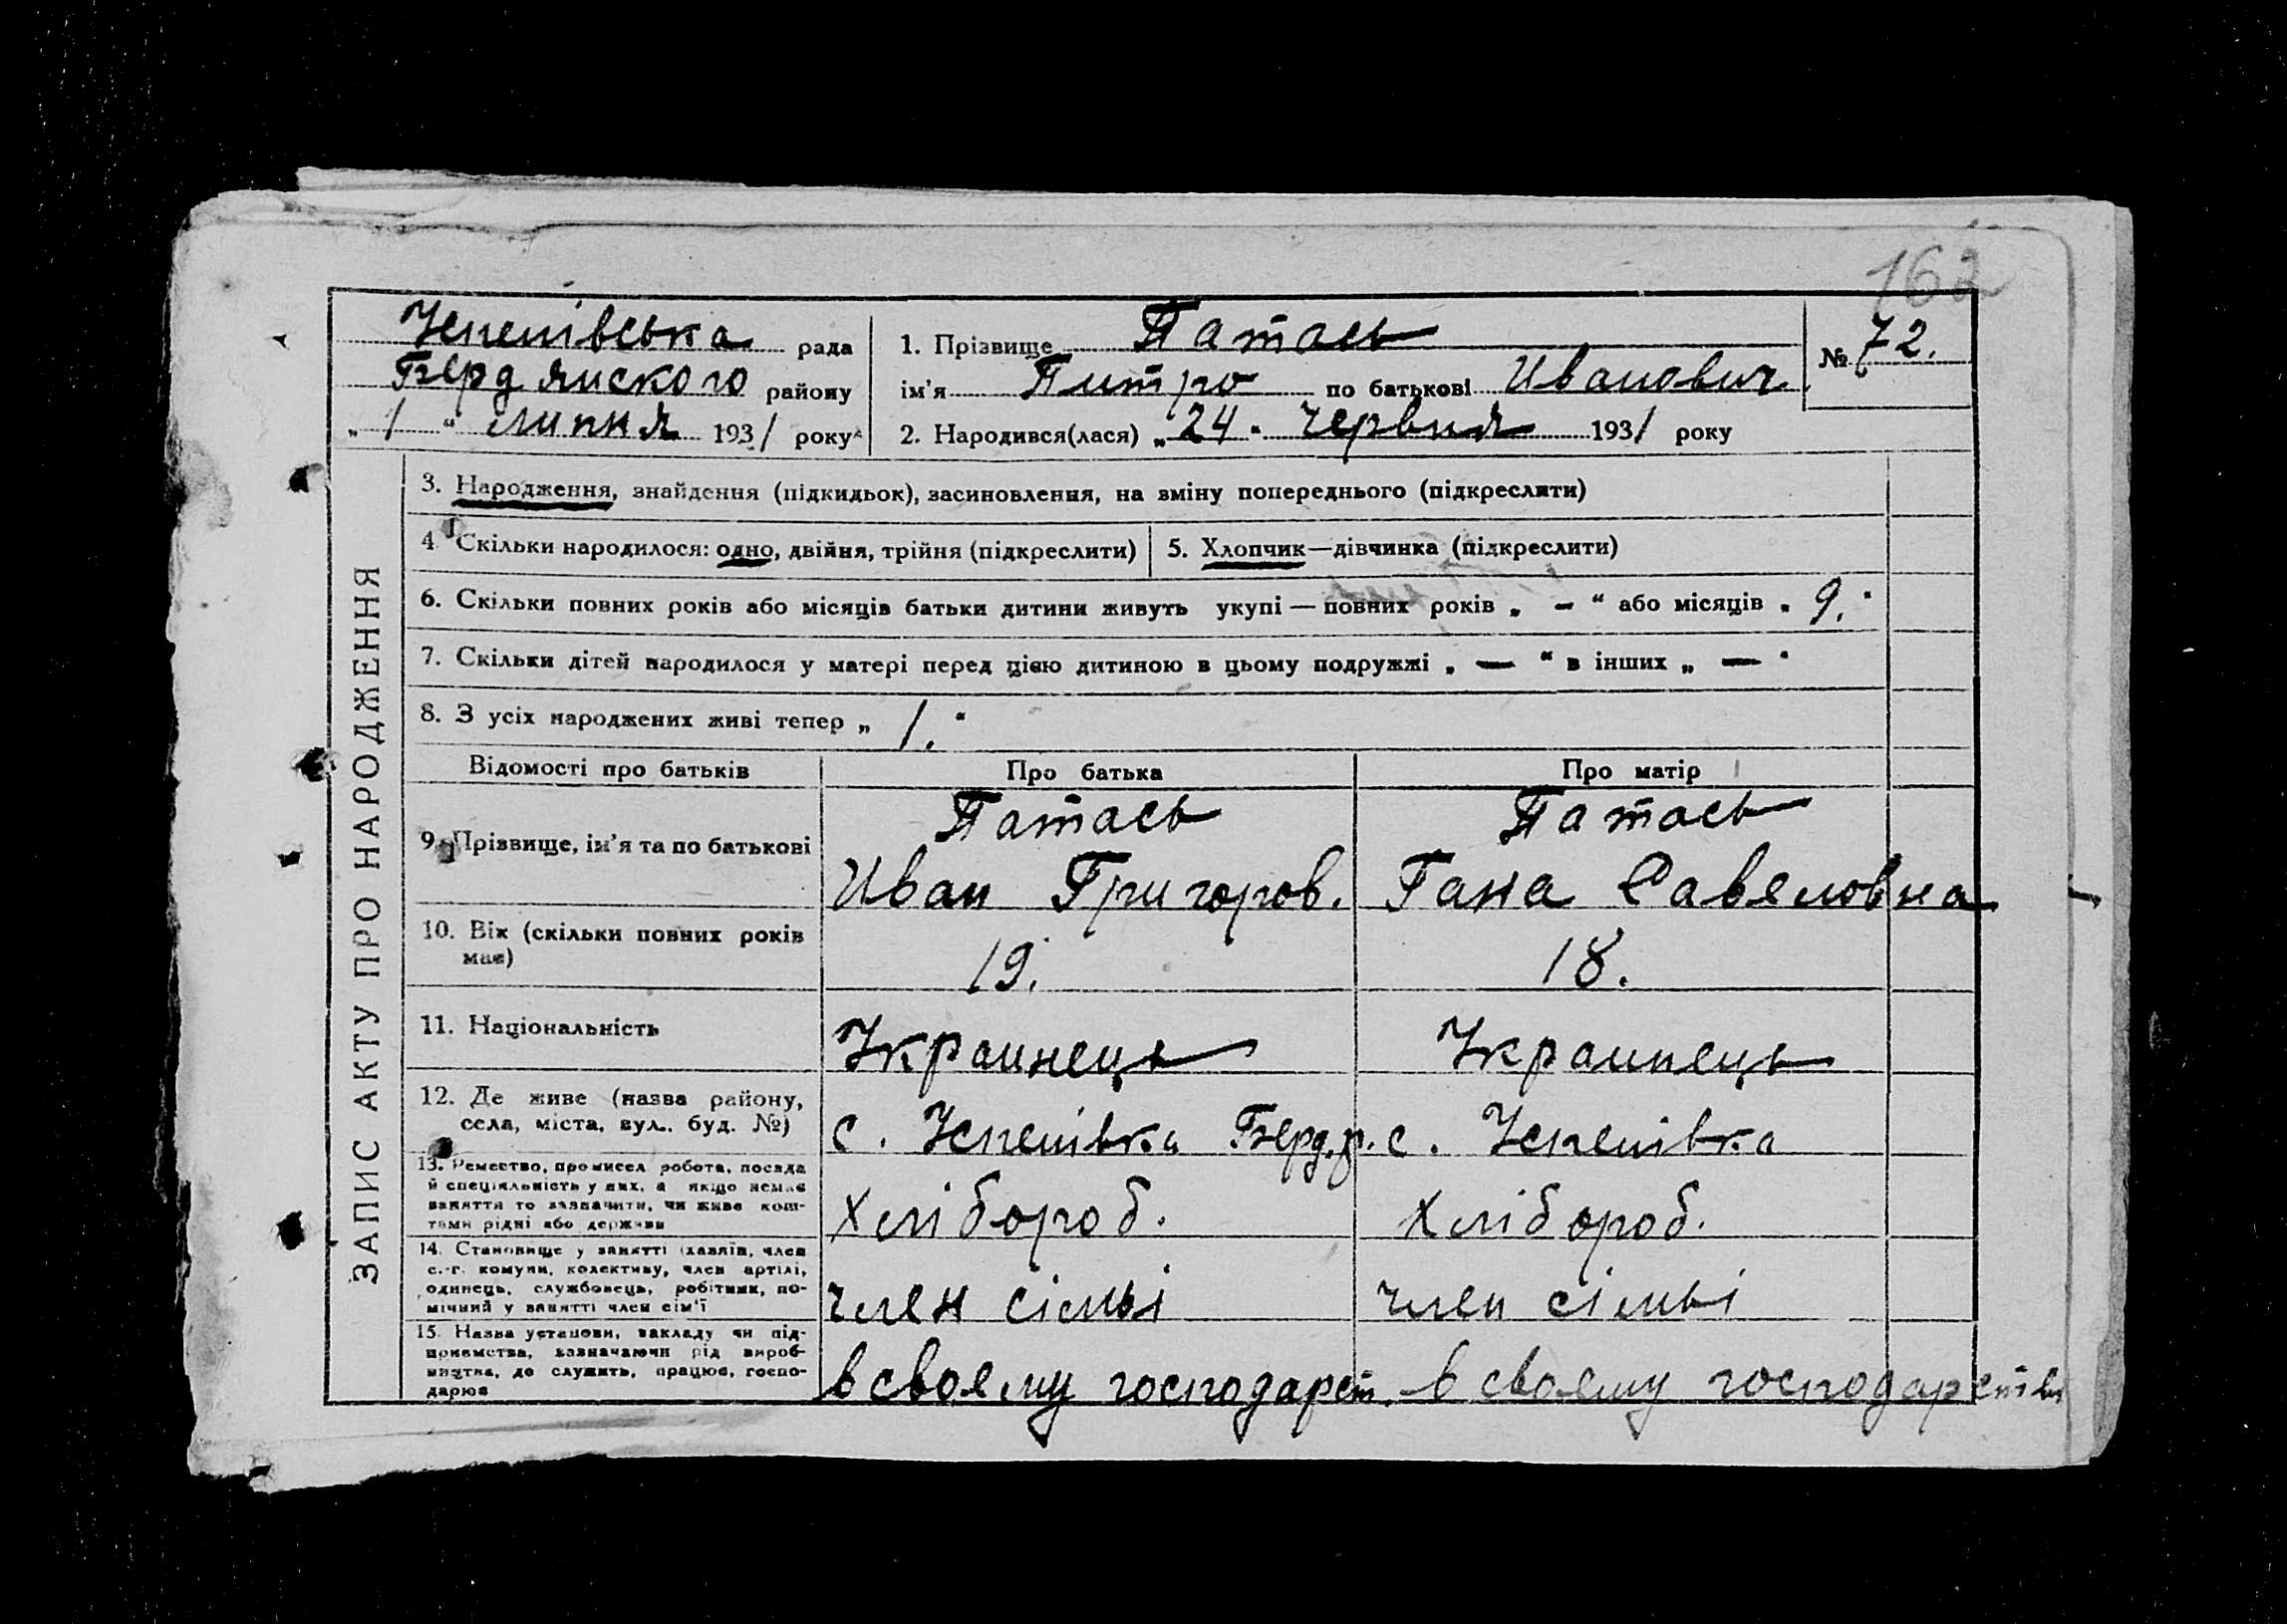 162
Успенівська рада
Бердянского району
„ 1 “ липня 1931 року
1. Прізвище Патась
ім'я Питро по батькові Иванович.
№ 72.
2. Народився(лася) „24“ червня 1931 року
ЗАПИС АКТУ ПРО НАРОДЖЕННЯ
3. Народження, знайдення (підкидьок), засиновлення, на зміну попереднього (підкреслити)
4. Скільки народилося: одно, двійня, трійня (підкреслити)
5. Хлопчик—дівчинка (підкреслити)
6. Скільки повних років або місяців батьки дитини живуть укупі — повних років „ – “ або місяців „ 9. “
7. Скільки дітей народилося у матері перед цією дитиною в цьому подружжі „ — “ в інших „ — “
8. З усіх народжених живі тепер „ 1. “
Відомості про батьків
Про батька
Про матір
9. Прізвище, ім'я та по батькові
Патась
Иван Григоров.
Патась
Гана Савеловна
10. Вік (скільки повних років
має)
19.
18.
11. Національність
Украинець
Украинець
12. Де живе (назва району,
села, міста, вул., буд. №)
с. Успенівка Берд.р.
с. Успенівка
13. Ремество, промисел робота, посада
й спеціяльність у них, а якщо немає
заняття то зазначити, чи живе кош-
тами рідні або держави
Хлібороб.
Хлібороб.
14. Становище у занятті (хазяїн, член
с.-г. комуни, колективу, член артілі,
одинець, службовець, робітник, по-
мічний у занятті член сім'ї
член сімьї
член сімьї
15. Назва установи, закладу чи під-
приємства, зазначаючи рід вироб-
ництва, де служить, працює, госпо-
дарює
в свояму господарст.
в своему господарстви